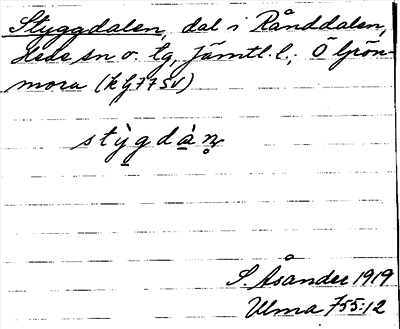 Styggdalen, dal i Rånddalen,
Hede sn o. tg, Jämtl. l.; Ö Grön-
mora (k G77SV)
stỳgdàn̥
S. Åsander 1919
Ulma 755:12